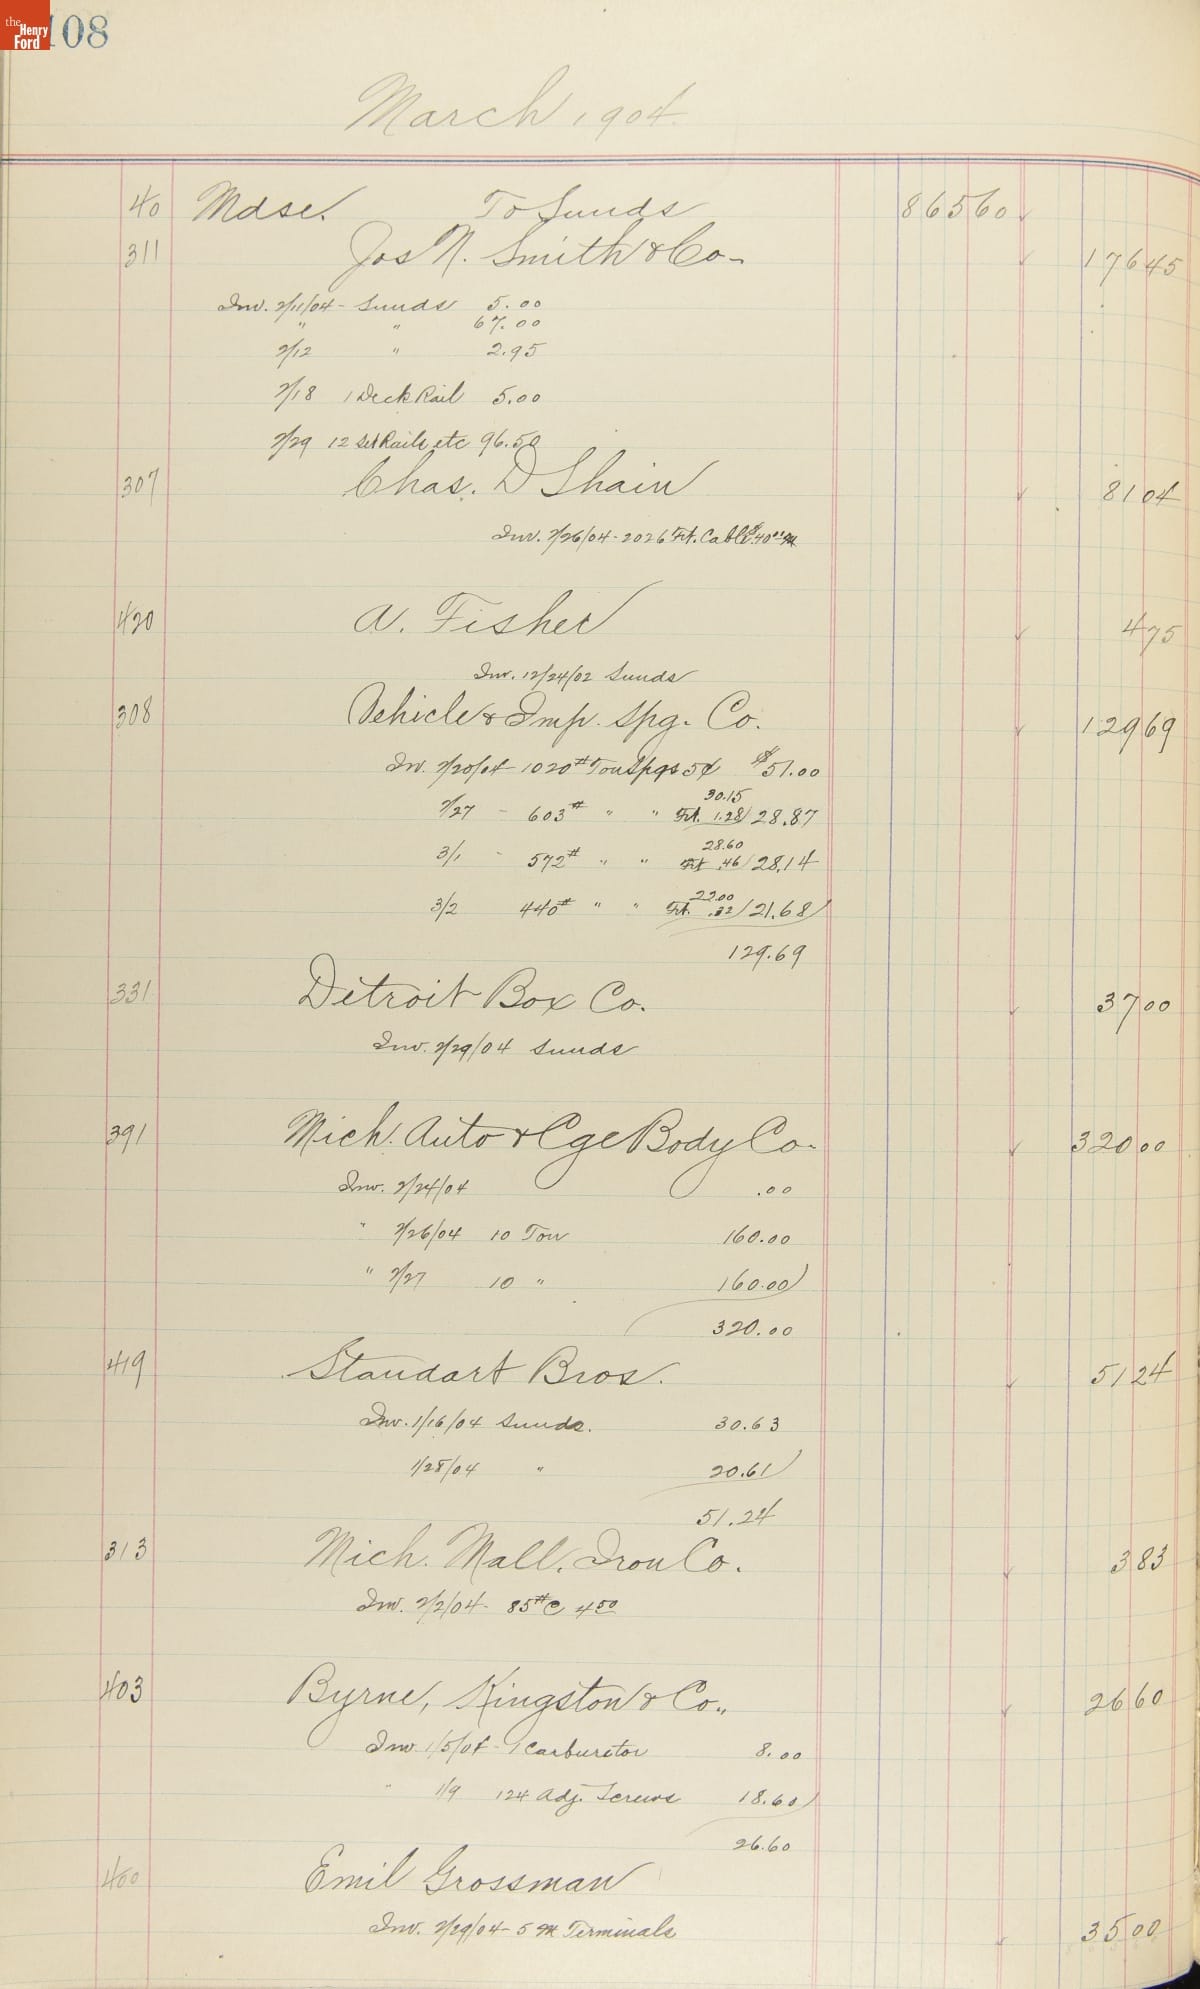 the Henry Ford
108
March 1904.
40 Mdse. To Sunds 865 60
311 Jos N. Smith & Co- 176 45
Inv. 2/11/04- Sunds 5.00
" " 67.00
2/12 " 2.95
2/18 1 Deck Rail 5.00
2/29 12 Set Rails etc 96.50
307 Chas. D Shain 81 04
Inv. 2/26/04-2026 Ft. Cable $40 00 M
420 A. Fisher 4 75
Inv. 12/24/02 Sunds
308 Vehicle & Imp. Spg. Co. 129 69
Inv. 2/20/04 - 1020# Ton Spgs 5¢ $51.00
30.15
2/27 - 603# " " Frt. 1.28/ 28.87
28.60
3/1 - 572# " " Frt .46/ 28.14
22.00
3/2 440# " " Frt. .32/ 21.68
129.69
331 Detroit Box Co. 37 00
Inv. 2/29/04 Sunds
391 Mich. Auto & Cge Body Co- 320 00
Inv. 2/24/04 .00
" 2/26/04 10 Ton 160.00
" 2/27 10 " 160.00
320.00
419 Standart Bros. 51 24
Inv. 1/16/04 Sunds. 30.63
1/28/04 " 20.61
51.24
313 Mich. Mall. Iron Co. 3 83
Inv. 2/2/04- 85# C 4 50
403 Byrne, Kingston & Co., 26 60
Inv 1/5/04 - 1 Carburetor 8.00
" 1/9 124 Adj. Screws 18.60
26.60
400 Emil Grossman
Inv. 2/29/04- 5 M Terminals 35 00